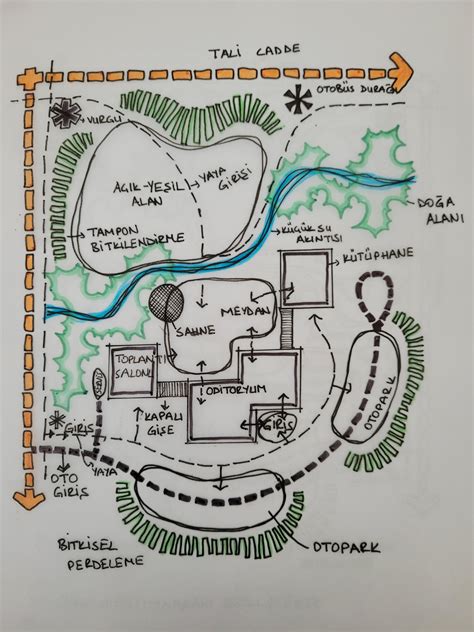 TALİ CADDE
OTOBÜS DURAĞI
VURGU
AÇIK-YEŞİL
ALAN
YAYA
GİRİŞİ
TAMPON
BİTKİLENDİRME
KÜÇÜK SU
AKINTISI
DOĞA
ALANI
KÜTÜPHANE
MEYDAN
SAHNE
TOPLANTI
SALONU
ODİTORYUM
KAPALI
GİŞE
GİRİŞ
OTOPARK
GİRİŞ
YAYA
OTO
GİRİŞ
BİTKİSEL
PERDELEME
OTOPARK